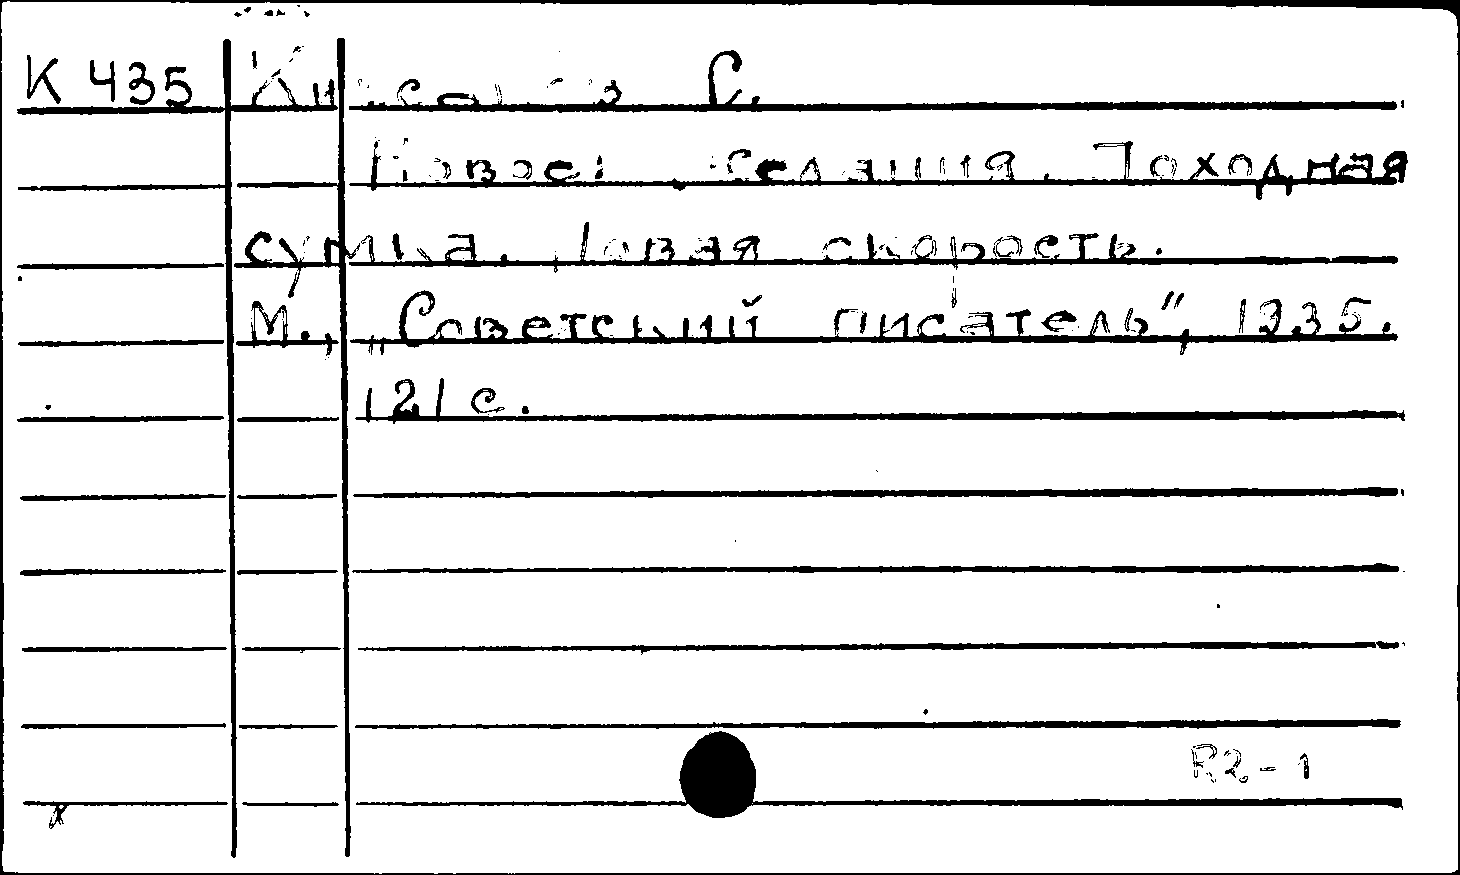 К 435 Кирсанов С.
Новое Походная
сумка. Новая скорость.
М., „Советский писатель“, 1935.
121 с.
R2-1